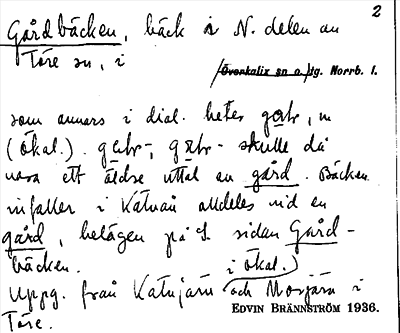 2
Gårdbäcken, bäck i N. delen av
Töre sn, i
Överkalix sn o. dg. Norrb. l.
som annars i dial. heter m
(ökal.). skulle då
vara ett äldre uttal av gård. Bäcken
infaller i Kätuån alldeles vid en
gård, belägen på S. sidan Gård-
bäcken.
i ökal.)
Uppg. från Katujärn och Morjärn i
Töre.
EDVIN BRÄNNSTRÖM 1936.